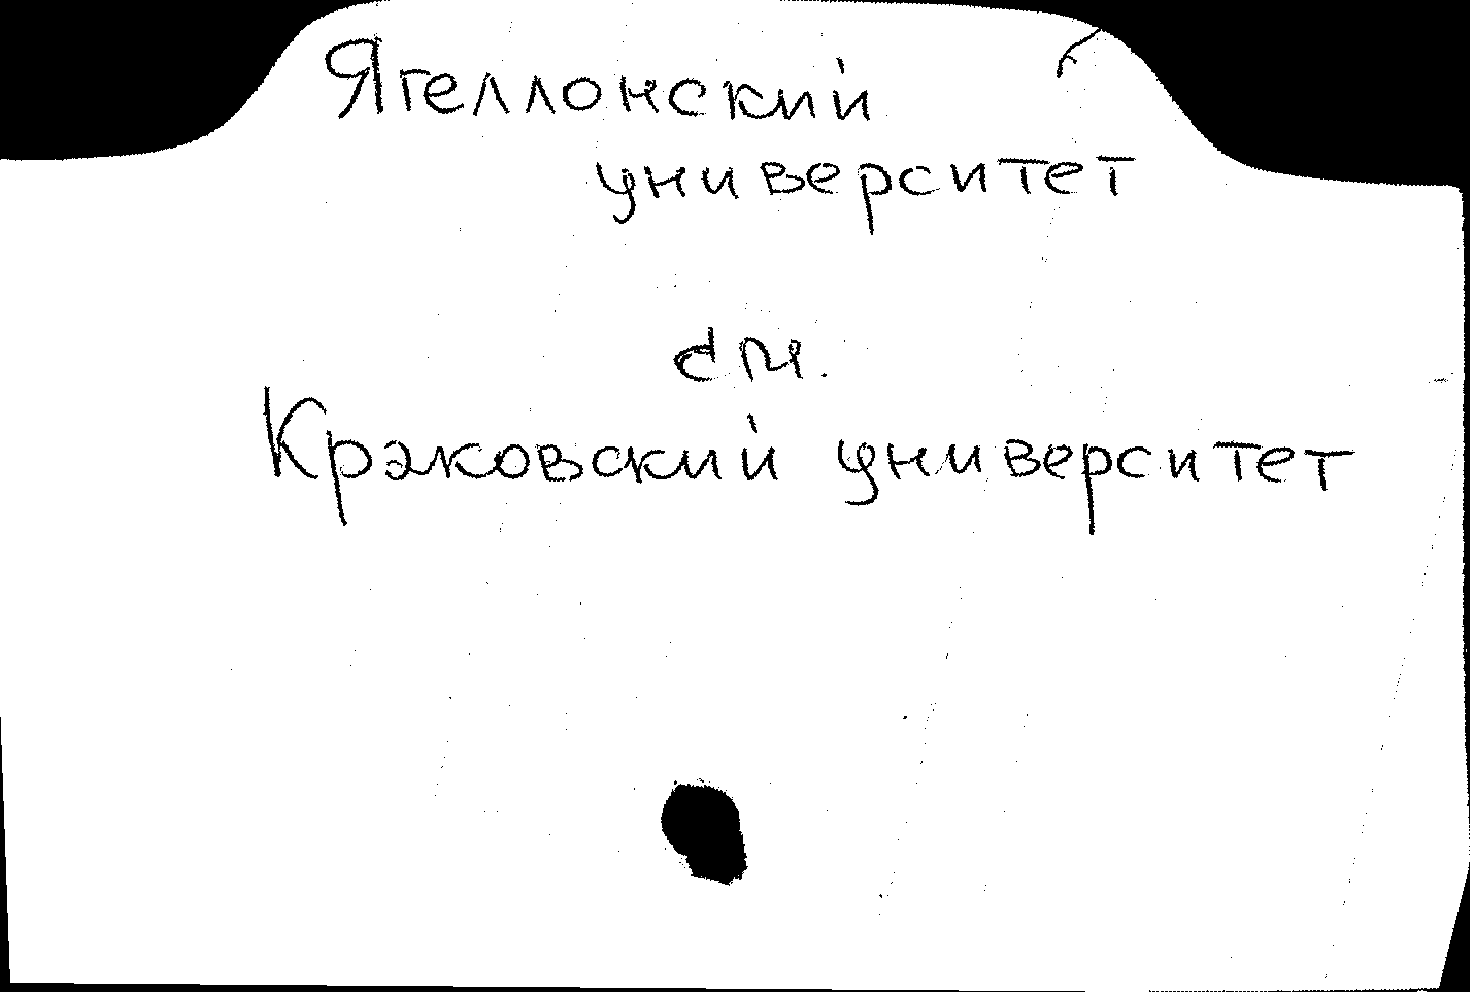 Ягеллонский
университет
см.
Краковский университет